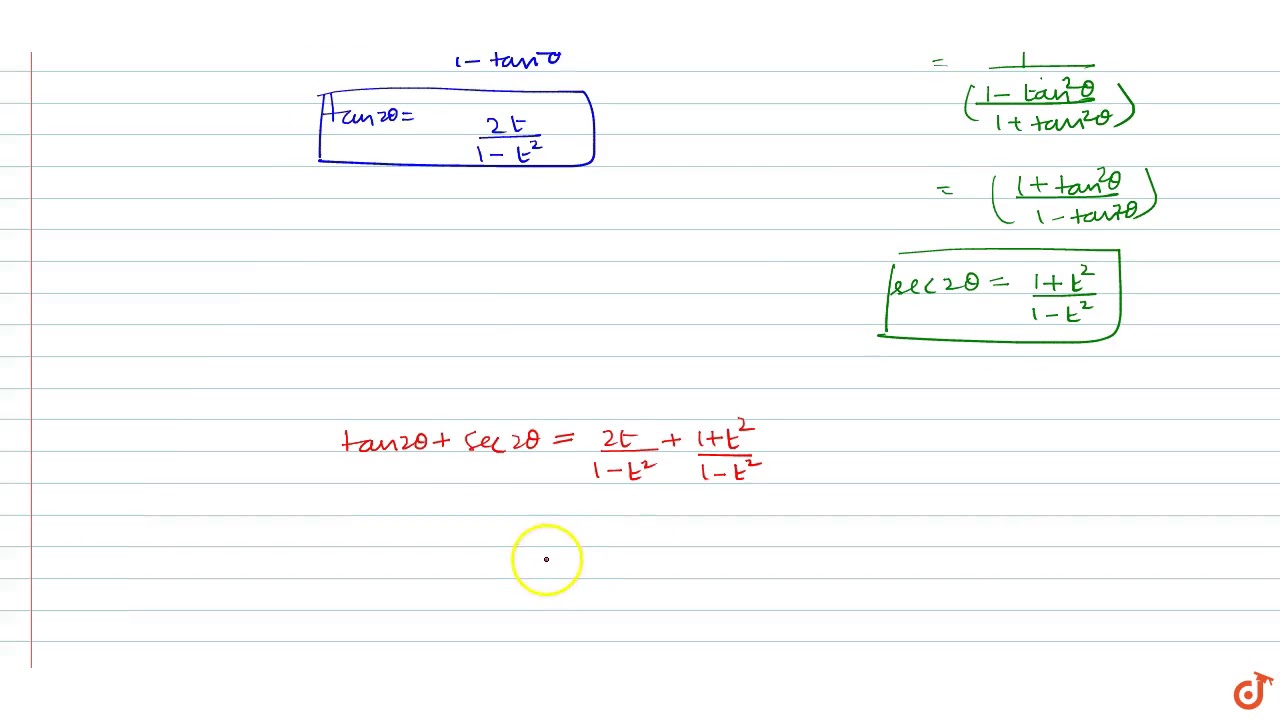 1 - tan²θ
tan2θ = 2t / 1 - t²
= 1 / (1 - tan²θ / 1 + tan²θ)
= (1 + tan²θ / 1 - tan²θ)
sec2θ = 1 + t² / 1 - t²
tan2θ + sec2θ = 2t / 1 - t² + 1 + t² / 1 - t²